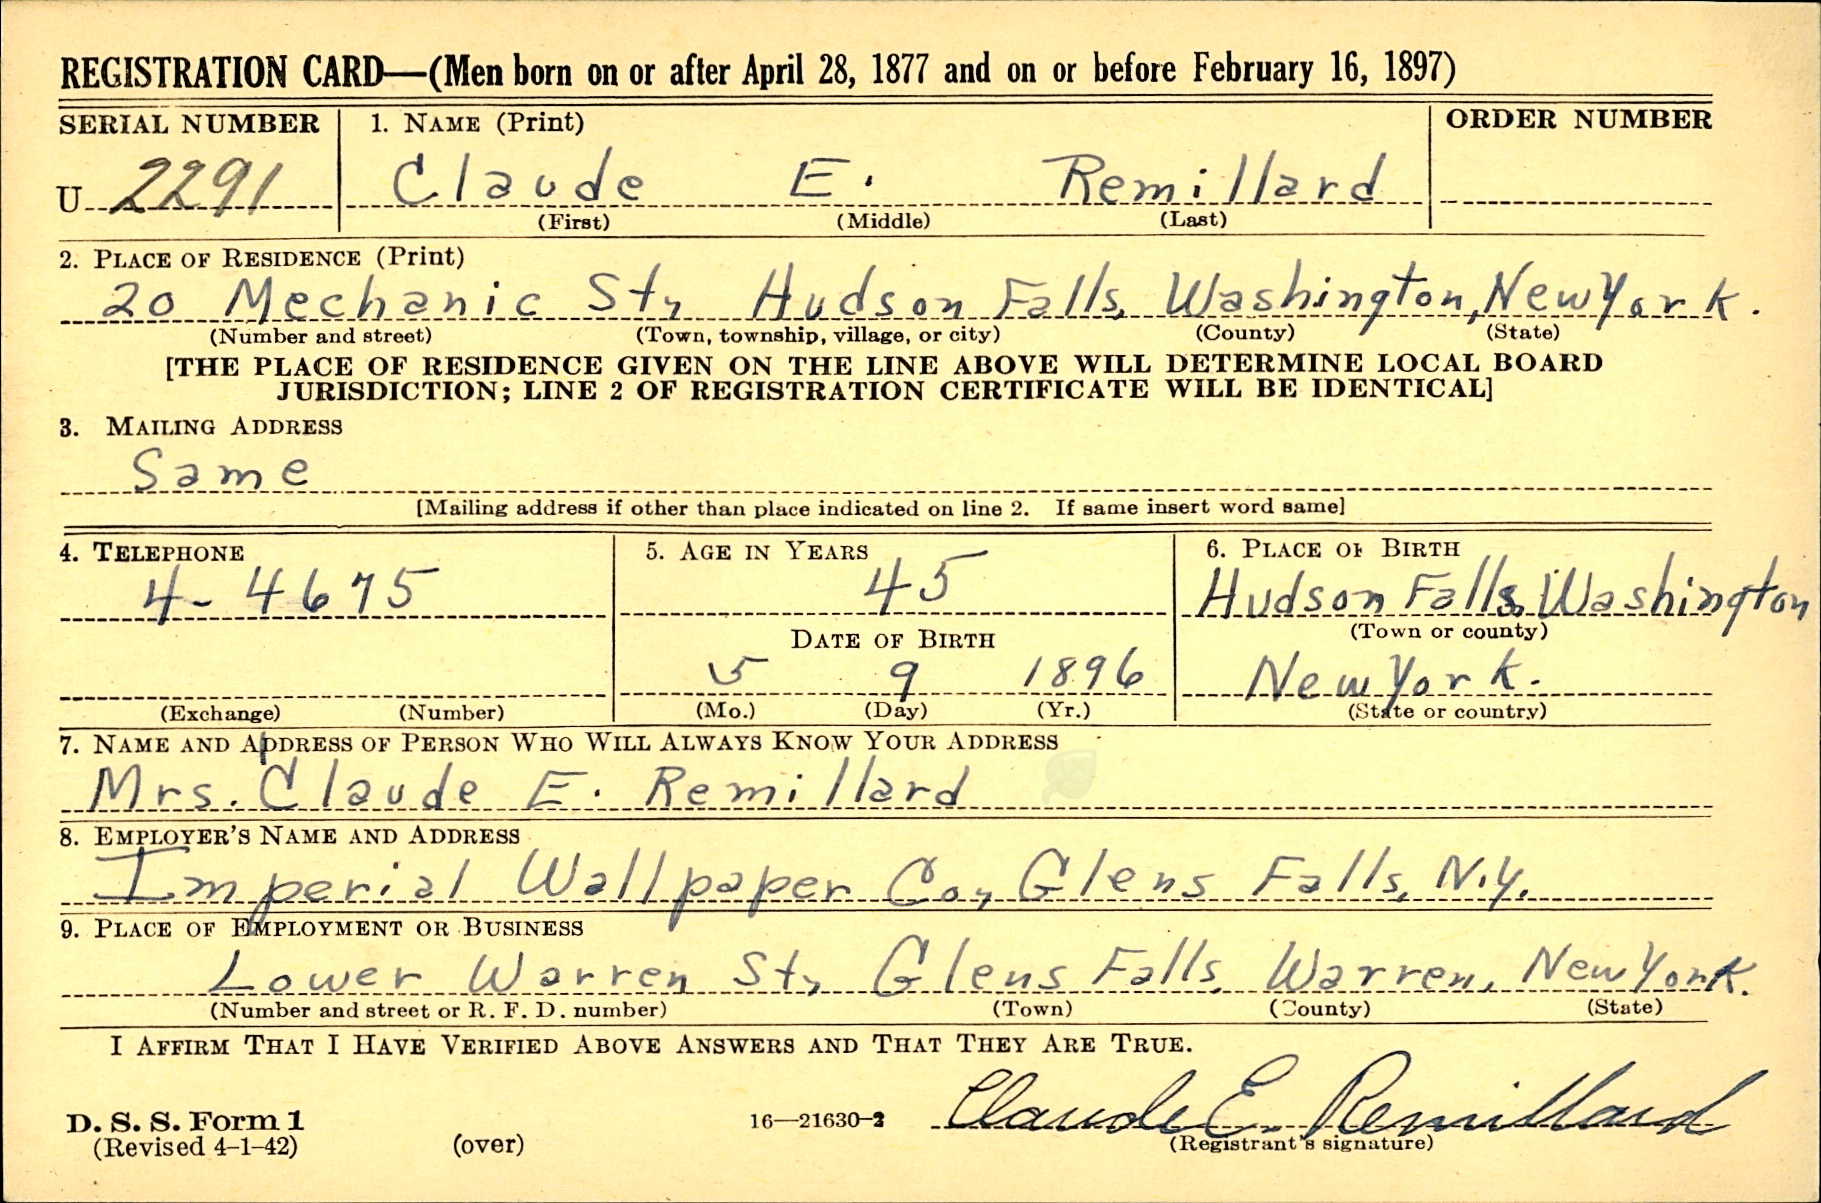 REGISTRATION CARD—(Men born on or after April 28, 1877 and on or before February 16, 1897)
SERIAL NUMBER 1. NAME (Print) ORDER NUMBER
U 2291 Claude E. Remillard
(First) (Middle) (Last)
2. PLACE OF RESIDENCE (Print)
20 Mechanic St, Hudson Falls, Washington, New York.
(Number and street) (Town, township, village, or city) (County) (State)
[THE PLACE OF RESIDENCE GIVEN ON THE LINE ABOVE WILL DETERMINE LOCAL BOARD
JURISDICTION; LINE 2 OF REGISTRATION CERTIFICATE WILL BE IDENTICAL]
3. MAILING ADDRESS
Same
[Mailing address if other than place indicated on line 2. If same insert word same]
4. TELEPHONE 5. AGE IN YEARS 6. PLACE OF BIRTH
4-4675 45 Hudson Falls, Washington
DATE OF BIRTH (Town or county)
5 9 1896 New York.
(Exchange) (Number) (Mo.) (Day) (Yr.) (State or country)
7. NAME AND ADDRESS OF PERSON WHO WILL ALWAYS KNOW YOUR ADDRESS
Mrs. Claude E. Remillard
8. EMPLOYER'S NAME AND ADDRESS
Imperial Wallpaper Co, Glens Falls, N.Y.
9. PLACE OF EMPLOYMENT OR BUSINESS
Lower Warren St, Glens Falls, Warren, New York.
(Number and street or R. F. D. number) (Town) (County) (State)
I AFFIRM THAT I HAVE VERIFIED ABOVE ANSWERS AND THAT THEY ARE TRUE.
D. S. S. Form 1 16—21630-2 Claude E. Remillard
(Revised 4-1-42) (over) (Registrant's signature)